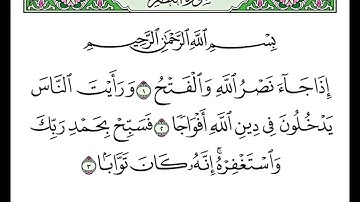 سورة النصر
بِسْمِ اللَّهِ الرَّحْمَٰنِ الرَّحِيمِ
إِذَا جَآءَ نَصْرُ اللَّهِ وَالْفَتْحُ ١ وَرَأَيْتَ النَّاسَ
يَدْخُلُونَ فِى دِينِ اللَّهِ أَفْوَاجًا ٢ فَسَبِّحْ بِحَمْدِ رَبِّكَ
وَاسْتَغْفِرْهُ ۚ إِنَّهُۥ كَانَ تَوَّابًا ٣